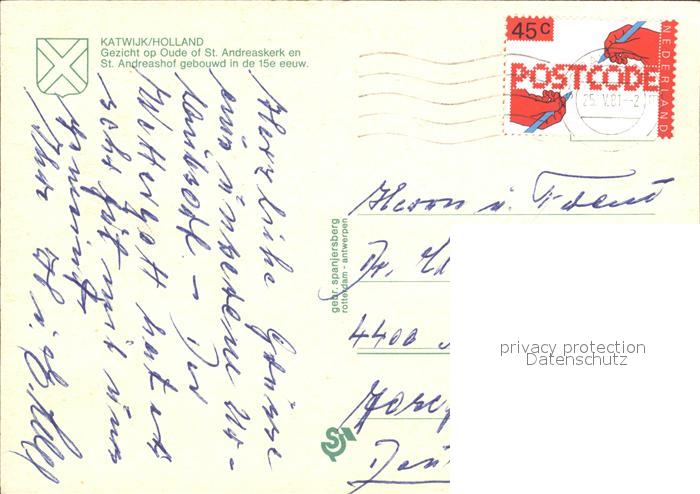 KATWIJK/HOLLAND
Gezicht op Oude of St. Andreaskerk en
St. Andreashof gebouwd in de 15e eeuw.
45c
POSTCODE
NEDERLAND
25.V.81.-21
Herzliche Grüsse
aus unserem Ur-
laubsort. - Der
Wettergott hat es
sehr gut mit uns
Ihre
gebr. spanjersberg
rotterdam - antwerpen
Herrn u. Frau
Dr.
4400
privacy protection
Datenschutz